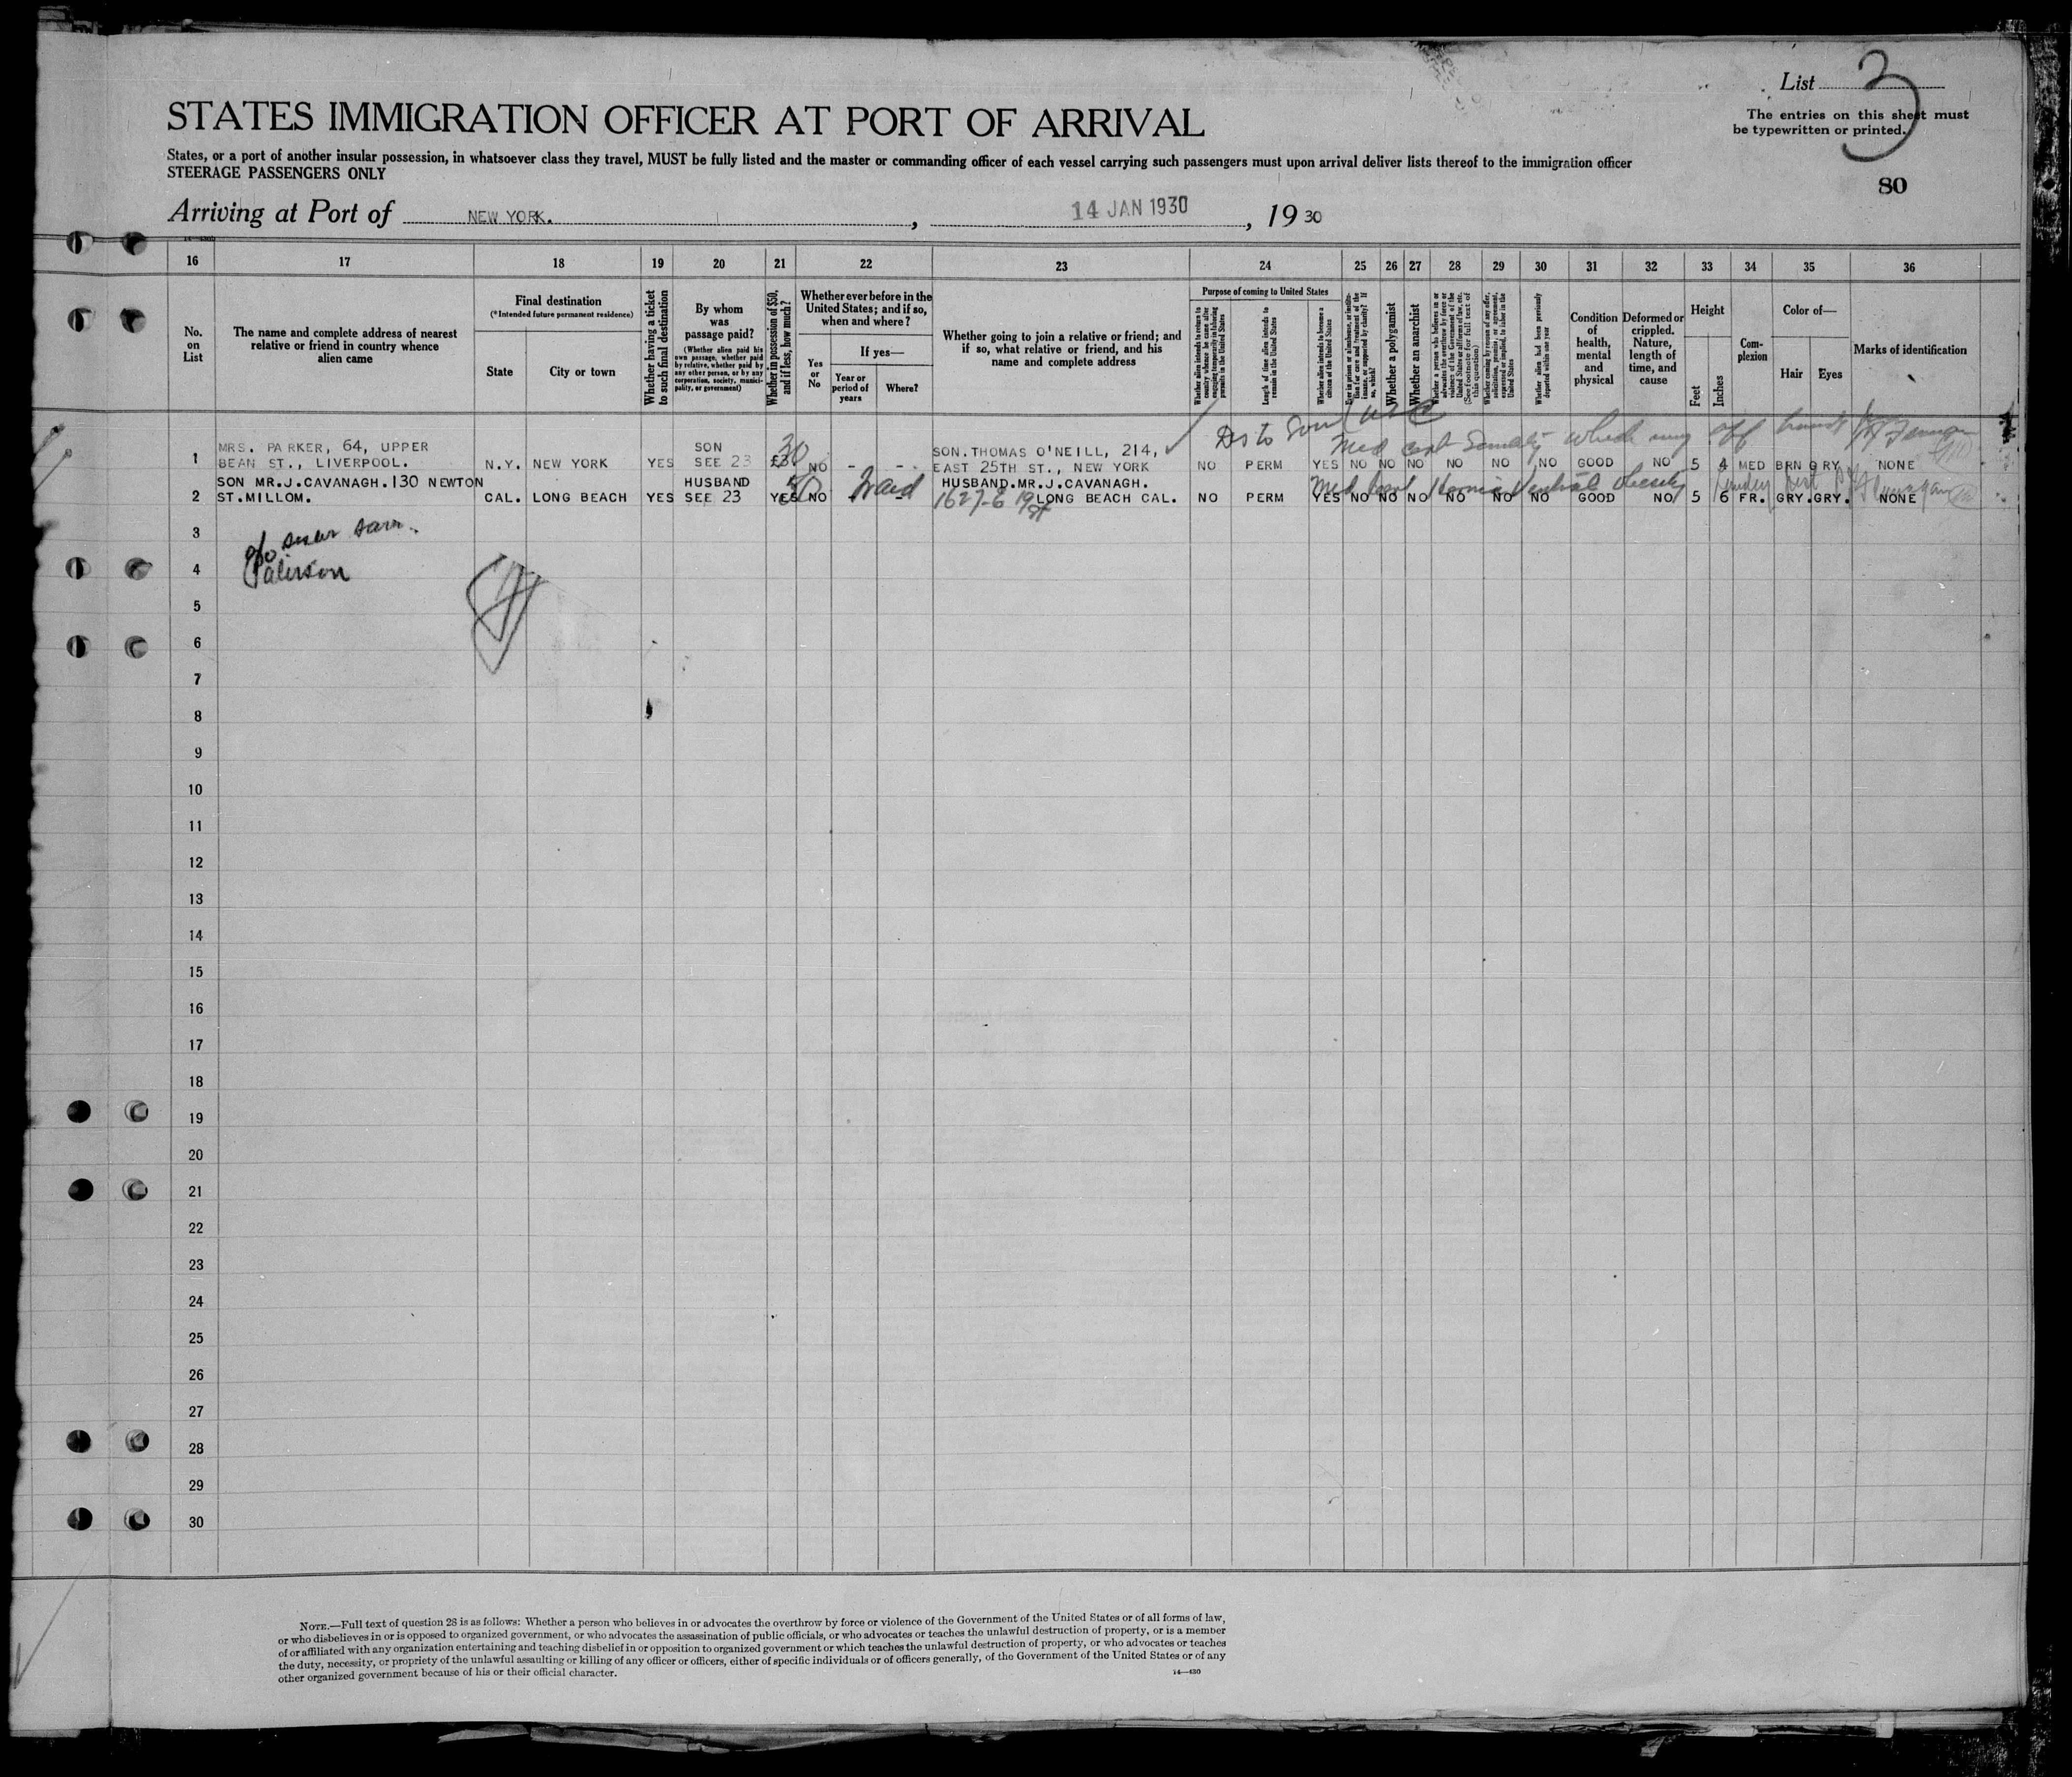 List 3
The entries on this sheet must
be typewritten or printed.
80
STATES IMMIGRATION OFFICER AT PORT OF ARRIVAL
States, or a port of another insular possession, in whatsoever class they travel, MUST be fully listed and the master or commanding officer of each vessel carrying such passengers must upon arrival deliver lists thereof to the immigration officer
STEERAGE PASSENGERS ONLY
Arriving at Port of NEW YORK. , 14 JAN 1930 , 19 30
16 17 18 19 20 21 22 23 24 25 26 27 28 29 30 31 32 33 34 35 36
No.
on
List
The name and complete address of nearest
relative or friend in country whence
alien came
Final destination
(*Intended future permanent residence)
State
City or town
Whether having a ticket
to such final destination
By whom
was
passage paid?
(Whether alien paid his
own passage, whether paid
by relative, whether paid by
any other person, or by any
corporation, society, munici-
pality, or government)
Whether in possession of $50,
and if less, how much?
Whether ever before in the
United States; and if so,
when and where?
Yes
or
No
If yes—
Year or
period of
years
Where?
Whether going to join a relative or friend; and
if so, what relative or friend, and his
name and complete address
Purpose of coming to United States
Whether alien intends to return to
country whence he came after
engaging temporarily in laboring
pursuits in the United States
Length of time alien intends to
remain in the United States
Whether alien intends to become a
citizen of the United States
Whether a polygamist
Whether an anarchist
Whether a person who believes in or
advocates the overthrow by force or
violence of the Government of the
United States or all forms of law, etc.
(See footnote for full text of
this question)
Whether coming by reason of any offer,
solicitation, promise, or agreement,
expressed or implied, to labor in the
United States
Whether alien had been previously
deported within one year
Condition
of
health,
mental
and
physical
Deformed or
crippled.
Nature,
length of
time, and
cause
Height
Feet
Inches
Com-
plexion
Color of—
Hair
Eyes
Marks of identification
Ds to Son (USC
MRS. PARKER, 64, UPPER SON 30 SON.THOMAS O'NEILL, 214,
1 BEAN ST., LIVERPOOL. N.Y. NEW YORK YES SEE 23 £3. NO - - EAST 25TH ST., NEW YORK NO PERM YES NO NO NO NO NO NO GOOD NO 5 4 MED BRN GRY NONE
Med cert which may aff
SON MR.J.CAVANAGH.130 NEWTON HUSBAND 50 HUSBAND.MR.J.CAVANAGH.
2 ST.MILLOM. CAL. LONG BEACH YES SEE 23 YES NO - - 1627-E 19 st LONG BEACH CAL. NO PERM YES NO NO NO NO NO NO GOOD NO 5 6 FR. GRY. GRY. NONE
Med Hernia obesity
3
4
5
6
7
8
9
10
11
12
13
14
15
16
17
18
19
20
21
22
23
24
25
26
27
28
29
30
NOTE.—Full text of question 28 is as follows: Whether a person who believes in or advocates the overthrow by force or violence of the Government of the United States or of all forms of law,
or who disbelieves in or is opposed to organized government, or who advocates the assassination of public officials, or who advocates or teaches the unlawful destruction of property, or is a member
of or affiliated with any organization entertaining and teaching disbelief in or opposition to organized government or which teaches the unlawful destruction of property, or who advocates or teaches
the duty, necessity, or propriety of the unlawful assaulting or killing of any officer or officers, either of specific individuals or of officers generally, of the Government of the United States or of any
other organized government because of his or their official character.
14—430